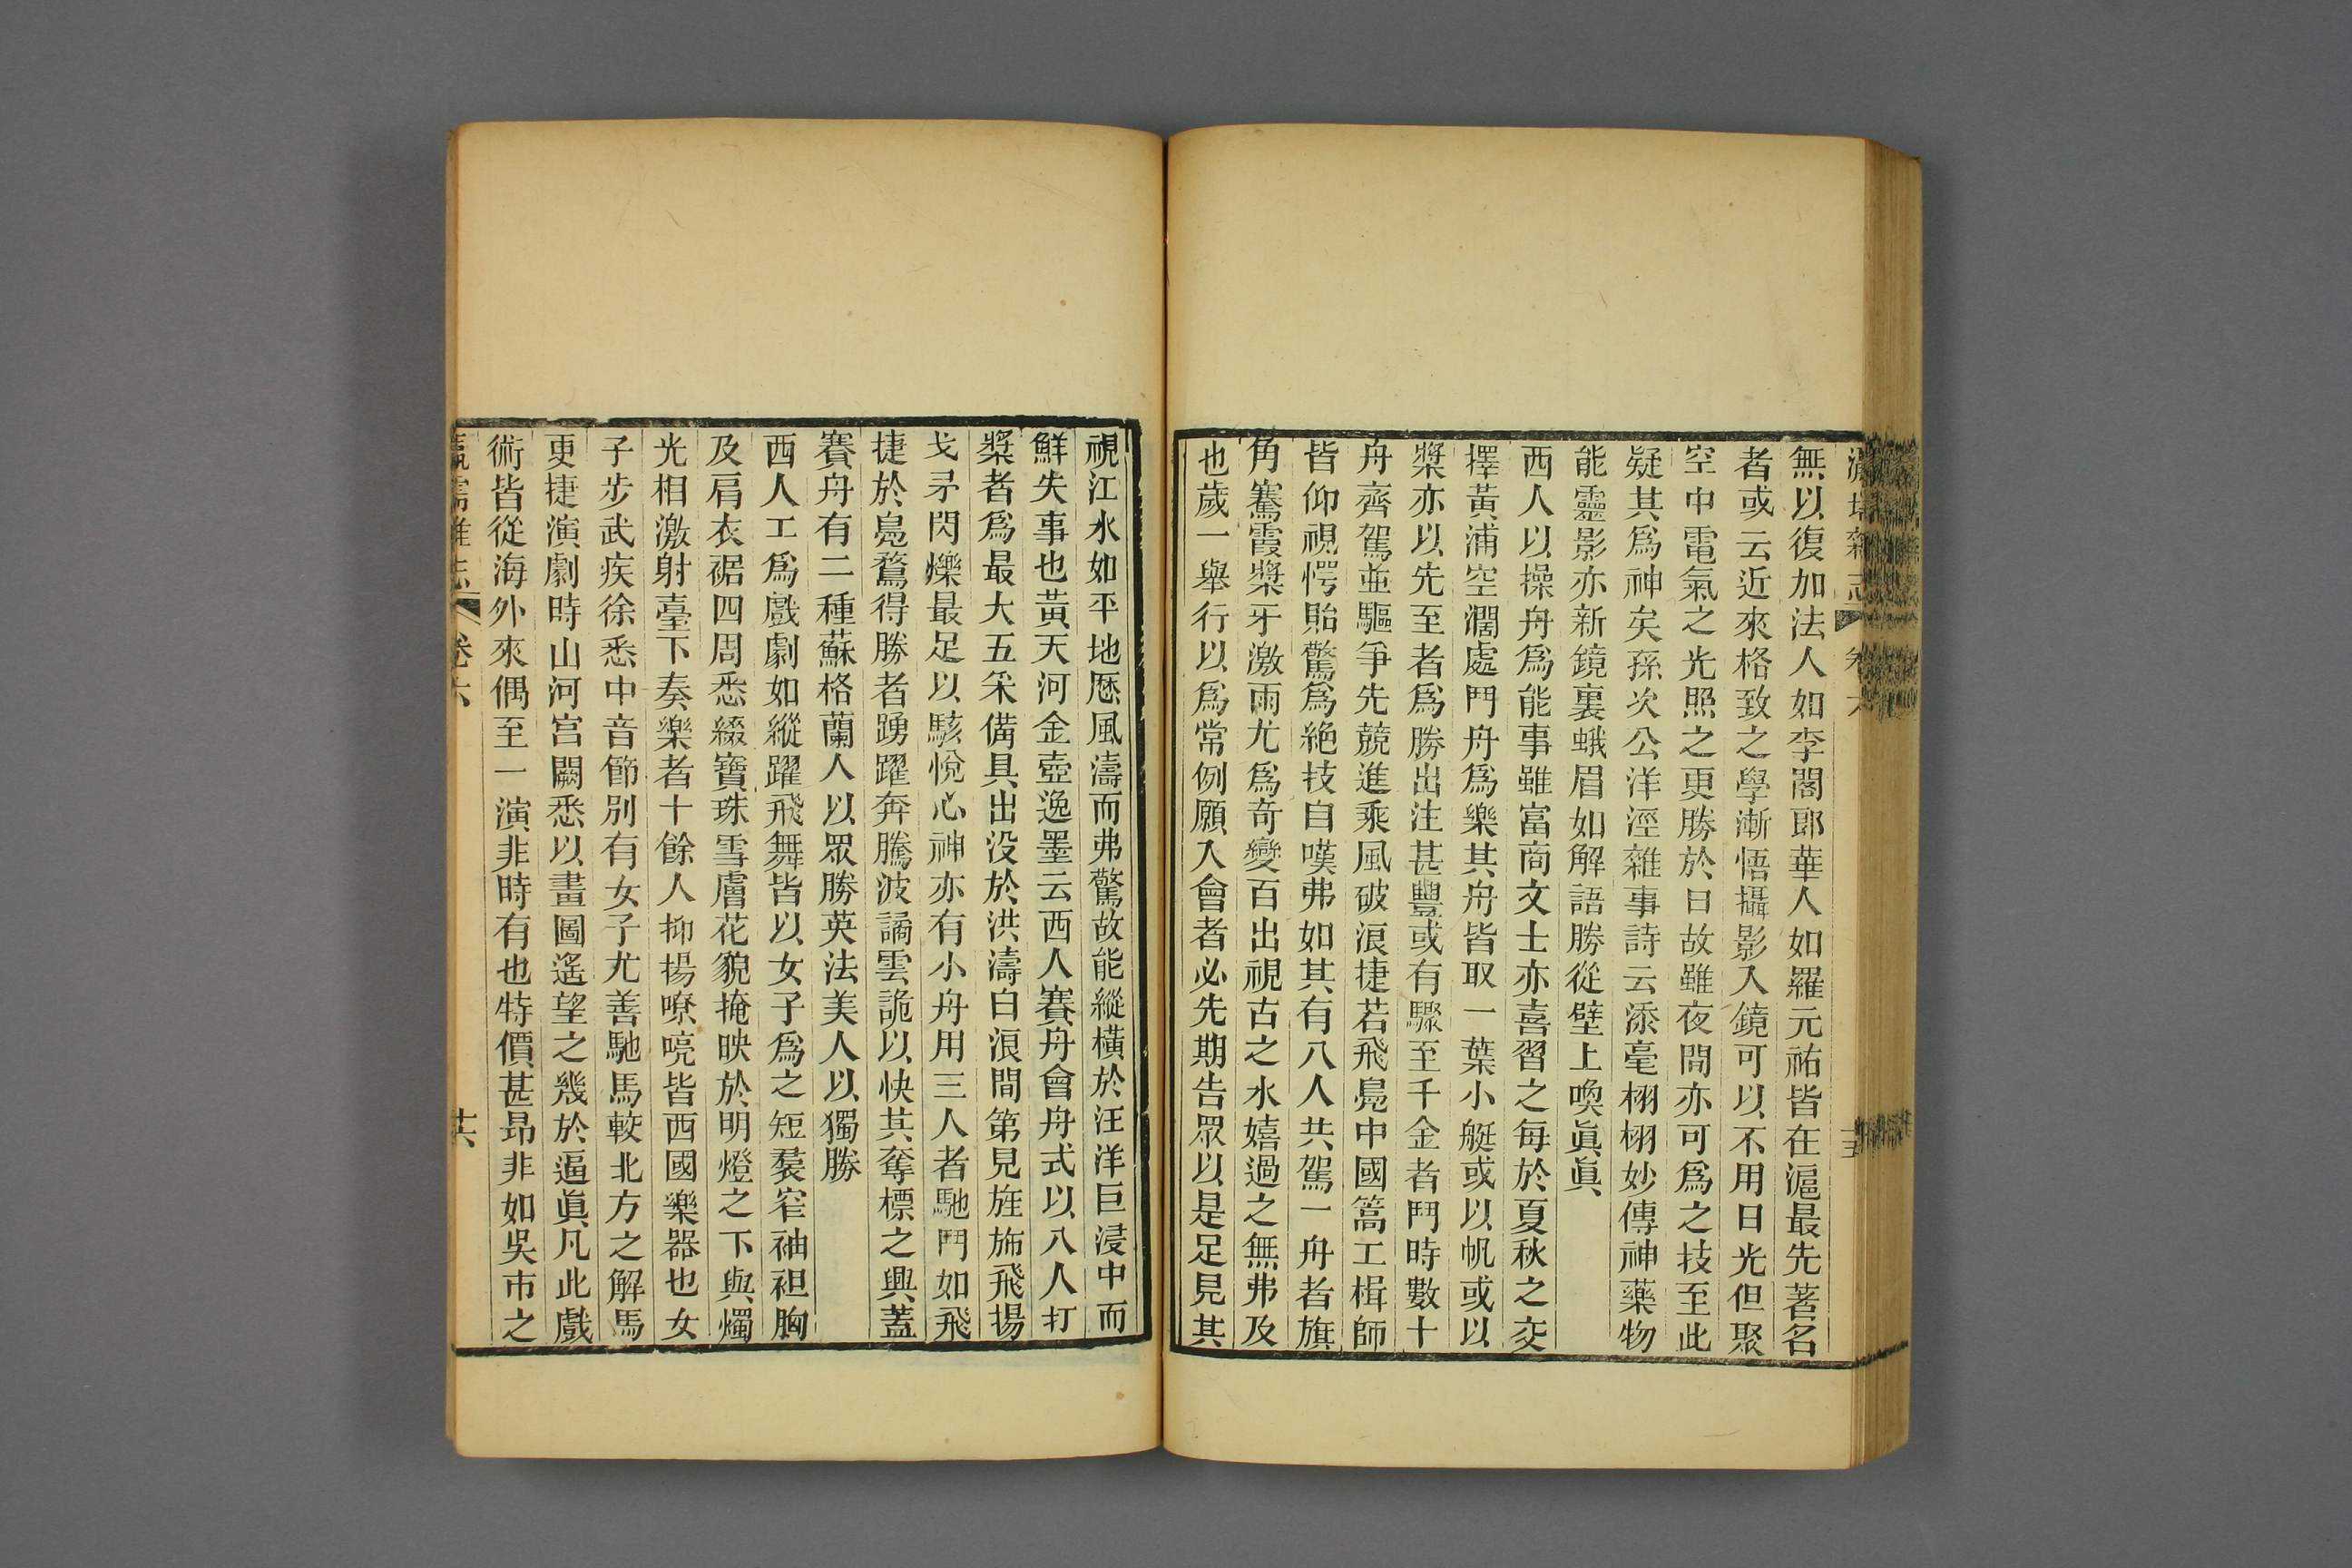 無以復加法人如李閣郎華人如羅元祐皆在滬最先著名
者或云近來格致之學漸悟攝影入鏡可以不用日光但聚
空中電氣之光照之更勝於日故雖夜間亦可爲之技至此
疑其爲神矣孫次公洋涇雜事詩云添毫栩栩妙傳神藥物
能靈影亦新鏡裏蛾眉如解語勝從壁上喚眞眞
西人以操舟爲能事雖富商文士亦喜習之每於夏秋之交
擇黃浦空濶處鬥舟爲樂其舟皆取一葉小艇或以帆或以
槳亦以先至者爲勝出注甚豐或有驟至千金者鬥時數十
舟齊駕並驅爭先競進乘風破浪捷若飛鳧中國篙工楫師
皆仰視愕眙驚爲絶技自嘆弗如其有八人共駕一舟者旗
角騫霞槳牙激雨尤爲奇變百出視古之水嬉過之無弗及
也歲一舉行以爲常例願入會者必先期告眾以是足見其
視江水如平地厯風濤而弗驚故能縱橫於汪洋巨浸中而
鮮失事也黃天河金壺逸墨云西人賽舟會舟式以八人打
槳者爲最大五釆備具出没於洪濤白浪間第見旌斾飛揚
戈矛閃爍最足以駭悅心神亦有小舟用三人者馳鬥如飛
捷於鳧鶩得勝者踴躍奔騰波譎雲詭以快其奪標之興蓋
賽舟有二種蘇格蘭人以眾勝英法美人以獨勝
西人工爲戲劇如縱躍飛舞皆以女子爲之短裠窄袖袒胸
及肩衣裾四周悉綴寶珠雪膚花貌掩映於明燈之下與燭
光相激射臺下奏樂者十餘人抑揚嘹喨皆西國樂器也女
子步武疾徐悉中音節別有女子尤善馳馬較北方之解馬
更捷演劇時山河宮闕悉以畫圖遙望之幾於逼眞凡此戲
術皆從海外來偶至一演非時有也特價甚昂非如吳市之
瀛壖雜志 卷六 廿六